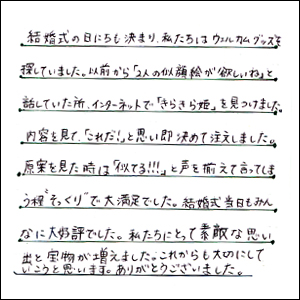 結婚式の日にちも決まり、私たちはウェルカムグッズを
探していました。以前から「2人の似顔絵が欲しいね」と
話していた所、インターネットで「きらきら姫」を見つけました。
内容を見て、「これだ!」と思い即決めて注文しました。
原実を見た時は「似てる!!!」と声を揃えて言ってしま
う程“そっくり”で大満足でした。結婚式当日もみん
なに大好評でした。私たちにとって素敵な思い
出と宝物が増えました。これからも大切にして
いこうと思います。ありがとうございました。